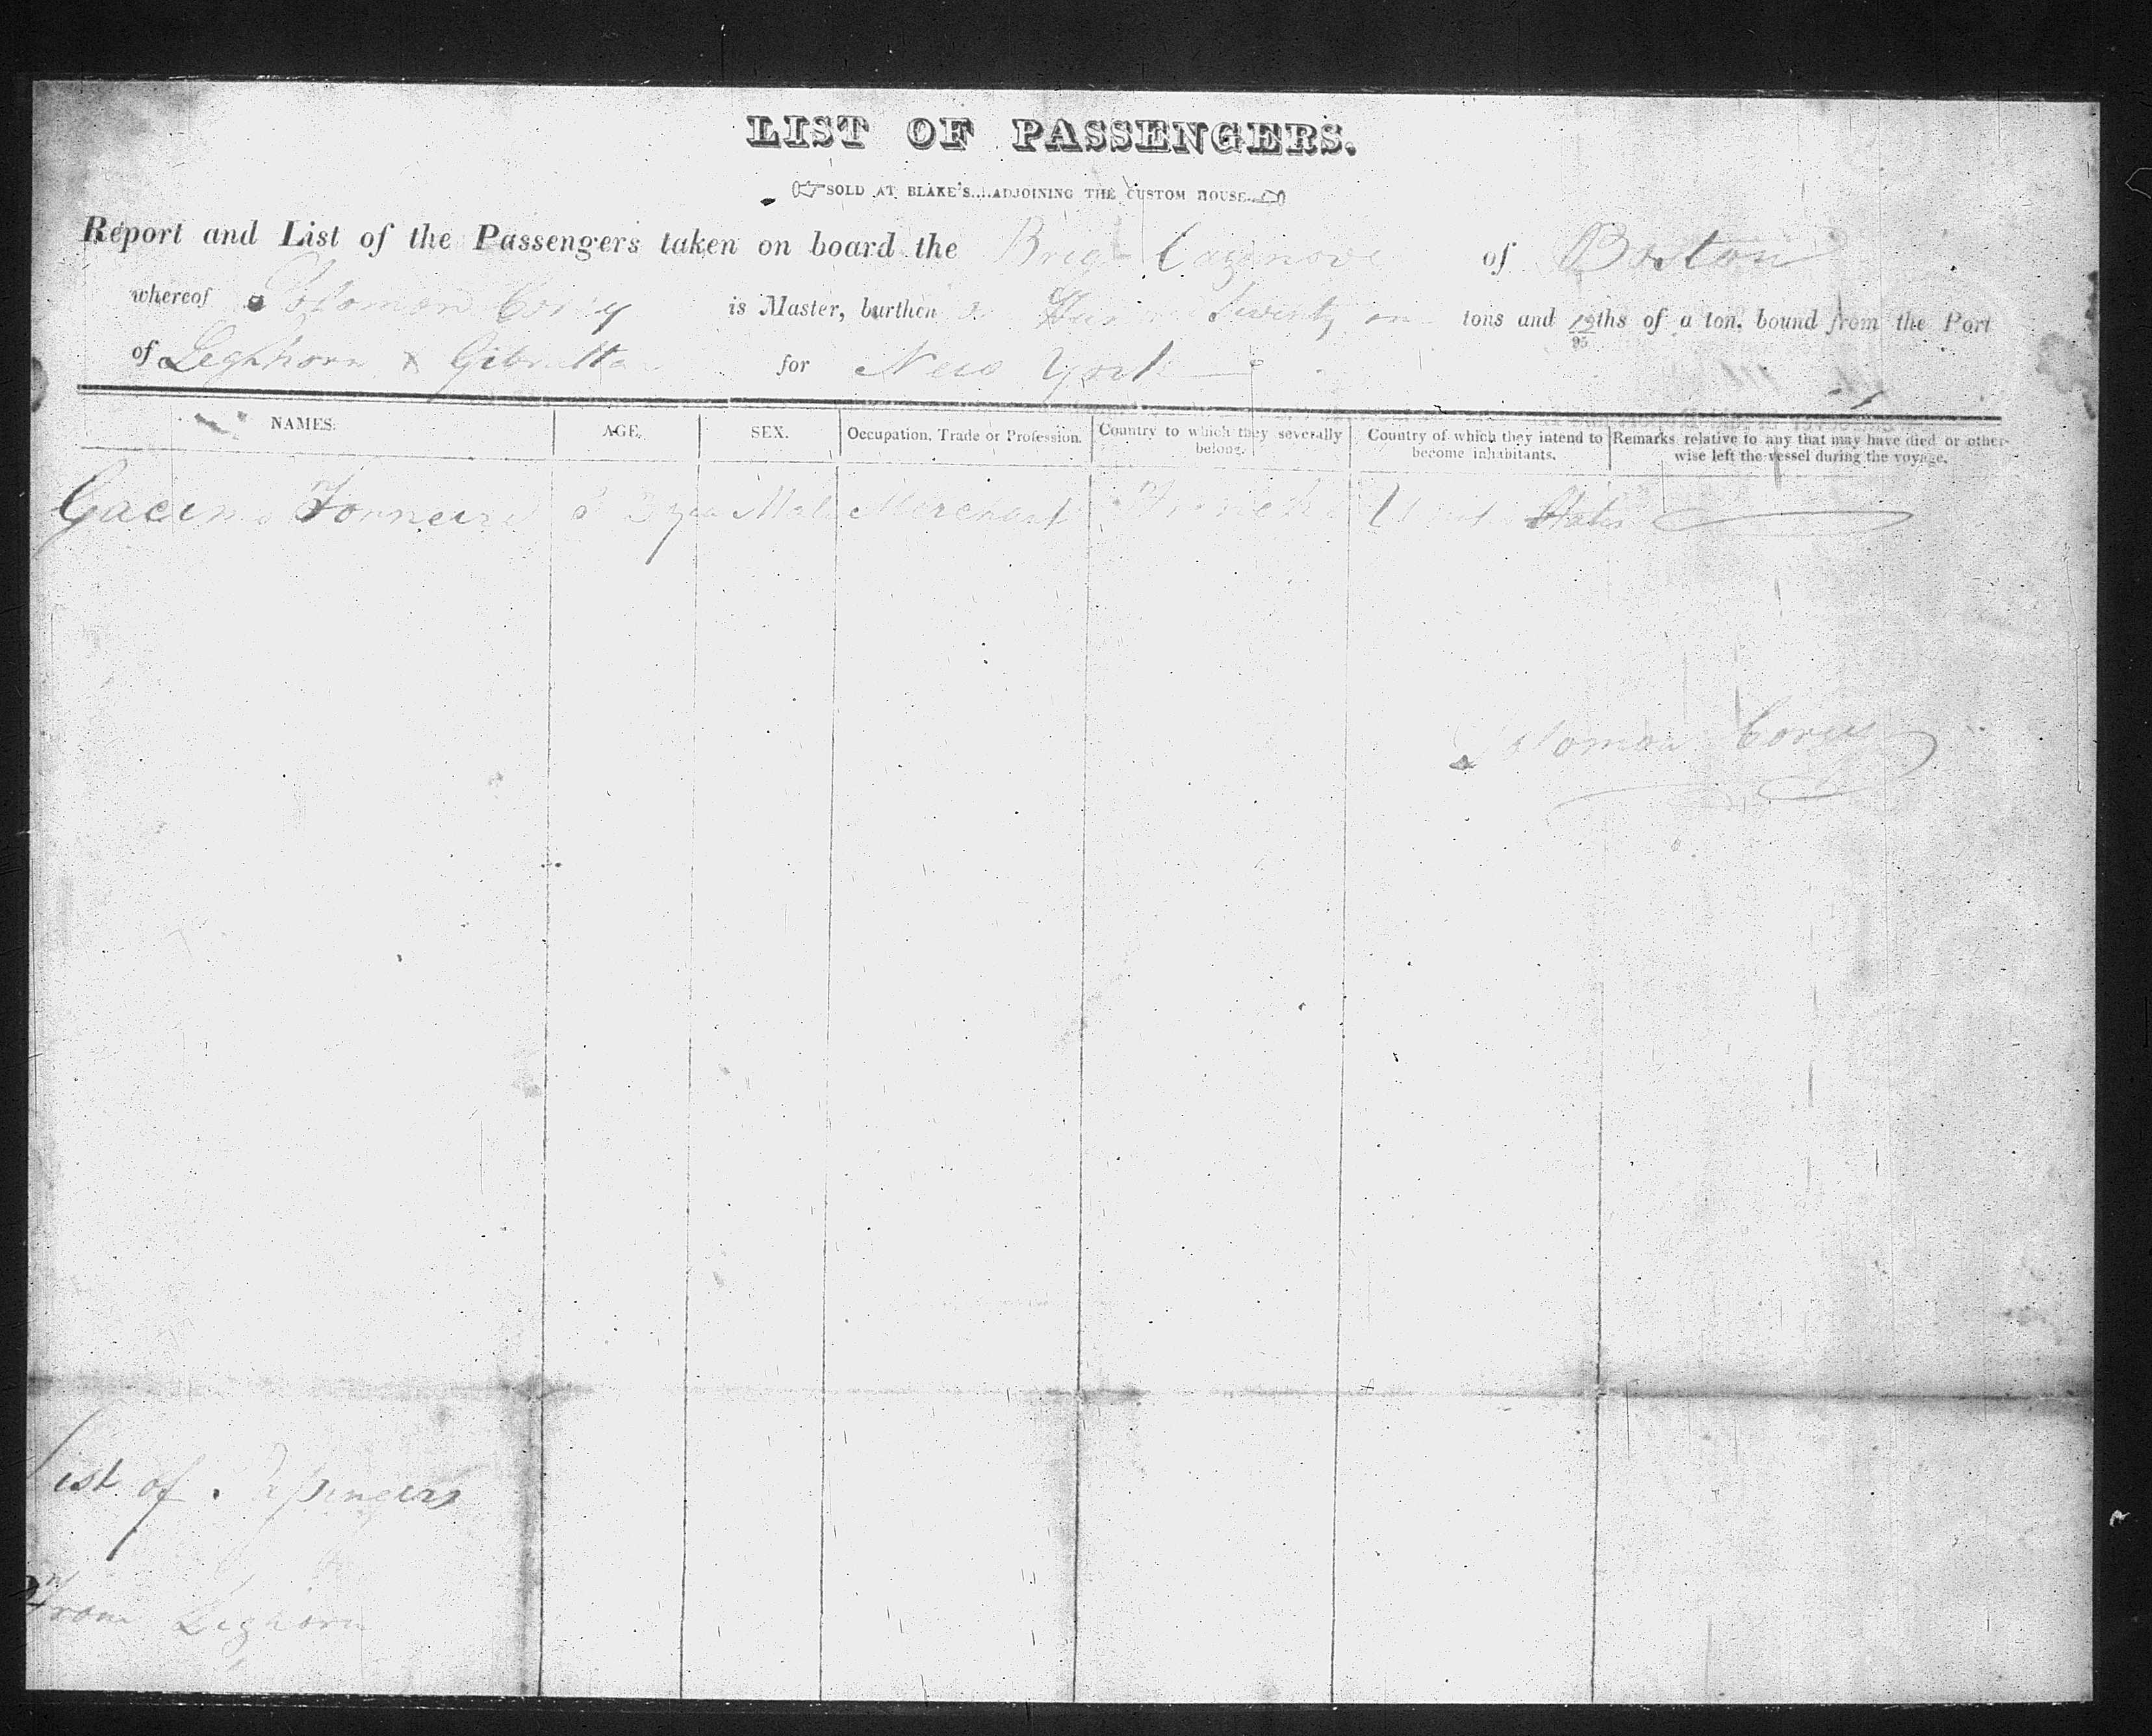 LIST OF PASSENGERS.
SOLD AT BLAKE'S....ADJOINING THE CUSTOM HOUSE.
Report and List of the Passengers taken on board the Brig Cazenove of Boston
whereof Solomon Corey is Master, burthen Twenty tons and 19/95 ths of a ton, bound from the Port
of Leghhorn & Gibralta for New York
NAMES. AGE. SEX. Occupation, Trade or Profession. Country to which they severally belong. Country of which they intend to become inhabitants. Remarks relative to any that may have died or otherwise left the vessel during the voyage.
Male Merchant States
Solomon Corey
List of
From Leghorn